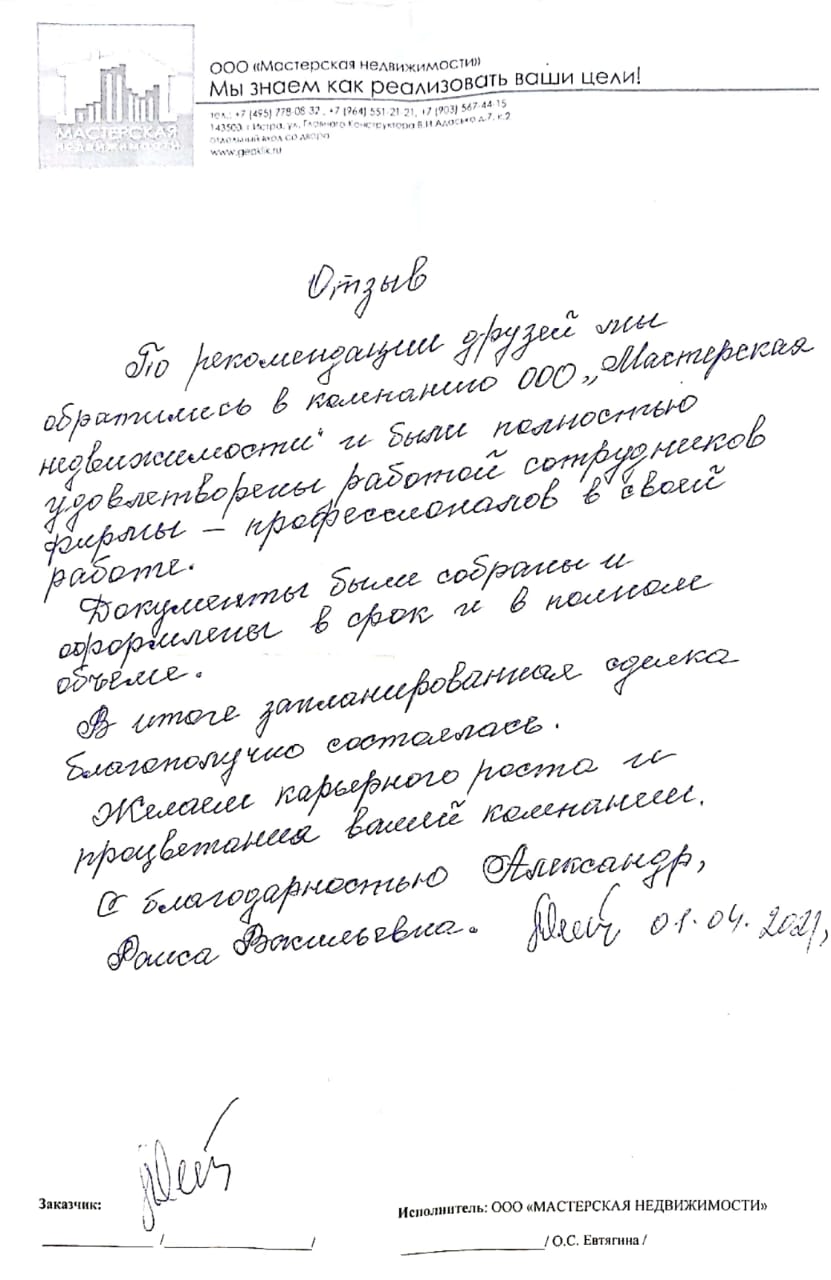 МАСТЕРСКАЯ
недвижимости
ООО «Мастерская недвижимости»
Мы знаем как реализовать ваши цели!
тел.: +7 (495) 778-08-32, +7 (964) 551-21-21, +7 (903) 567-44-15
143500, г.Истра, ул. Главного Конструктора В.И.Адасько д.7, к.2
отдельный вход со двора
Отзыв
По рекомендации друзей мы
обратились в компанию ООО „Мастерская
недвижимости" и были полностью
удовлетворены работой сотрудников
фирмы – профессионалов в своей
работе.
Документы были собраны и
оформлены в срок и в полном
объёме.
В итоге запланированная сделка
благополучно состоялась.
Желаем карьерного роста и
процветания вашей компании.
С благодарностью Александр,
Раиса Васильевна. 01.04.2021,
Заказчик:
Исполнитель: ООО «МАСТЕРСКАЯ НЕДВИЖИМОСТИ»
____________ / ____________ /
____________ / О.С. Евтягина /